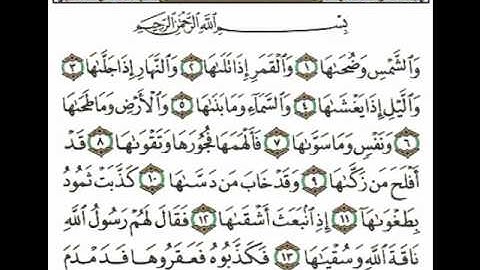 بِسْمِ ٱللَّهِ ٱلرَّحْمَٰنِ ٱلرَّحِيمِ
وَٱلشَّمْسِ وَضُحَىٰهَا ١ وَٱلْقَمَرِ إِذَا تَلَىٰهَا ٢ وَٱلنَّهَارِ إِذَا جَلَّىٰهَا ٣
وَٱلَّيْلِ إِذَا يَغْشَىٰهَا ٤ وَٱلسَّمَآءِ وَمَا بَنَىٰهَا ٥ وَٱلْأَرْضِ وَمَا طَحَىٰهَا
٦ وَنَفْسٍ وَمَا سَوَّىٰهَا ٧ فَأَلْهَمَهَا فُجُورَهَا وَتَقْوَىٰهَا ٨ قَدْ
أَفْلَحَ مَن زَكَّىٰهَا ٩ وَقَدْ خَابَ مَن دَسَّىٰهَا ١٠ كَذَّبَتْ ثَمُودُ
بِطَغْوَىٰهَآ ١١ إِذِ ٱنۢبَعَثَ أَشْقَىٰهَا ١٢ فَقَالَ لَهُمْ رَسُولُ ٱللَّهِ
نَاقَةَ ٱللَّهِ وَسُقْيَٰهَا ١٣ فَكَذَّبُوهُ فَعَقَرُوهَا فَدَمْدَمَ